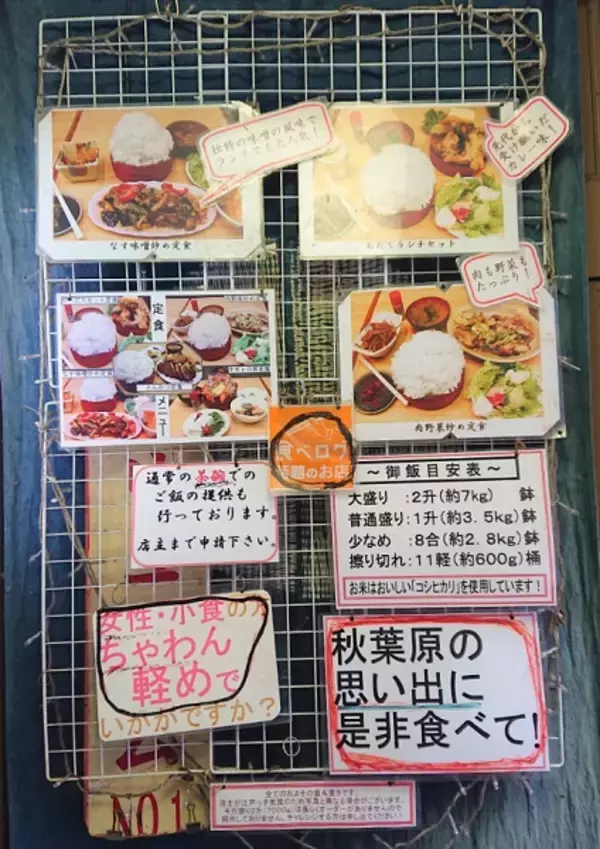 独特の味噌の風味で
ランチでも大人気!
なす味噌炒め定食
先代から
受け継いだ
カレー味!
あだちランチセット
定食
メニュー
肉も野菜も
たっぷり!
肉野菜炒め定食
食べログ
話題のお店
通常の茶碗での
ご飯の提供も
行っております。
店主まで申請下さい。
~御飯目安表~
大盛り :2升(約7kg) 鉢
普通盛り:1升(約3.5kg)鉢
少なめ :8合(約2.8kg)鉢
擦り切れ:11軽(約600g)桶
お米はおいしい「コシヒカリ」を使用しています!
女性・小食の方
ちゃわん
軽めで
いかがですか?
秋葉原の
思い出に
是非食べて!
NO1
全てのおよその量&重さです。